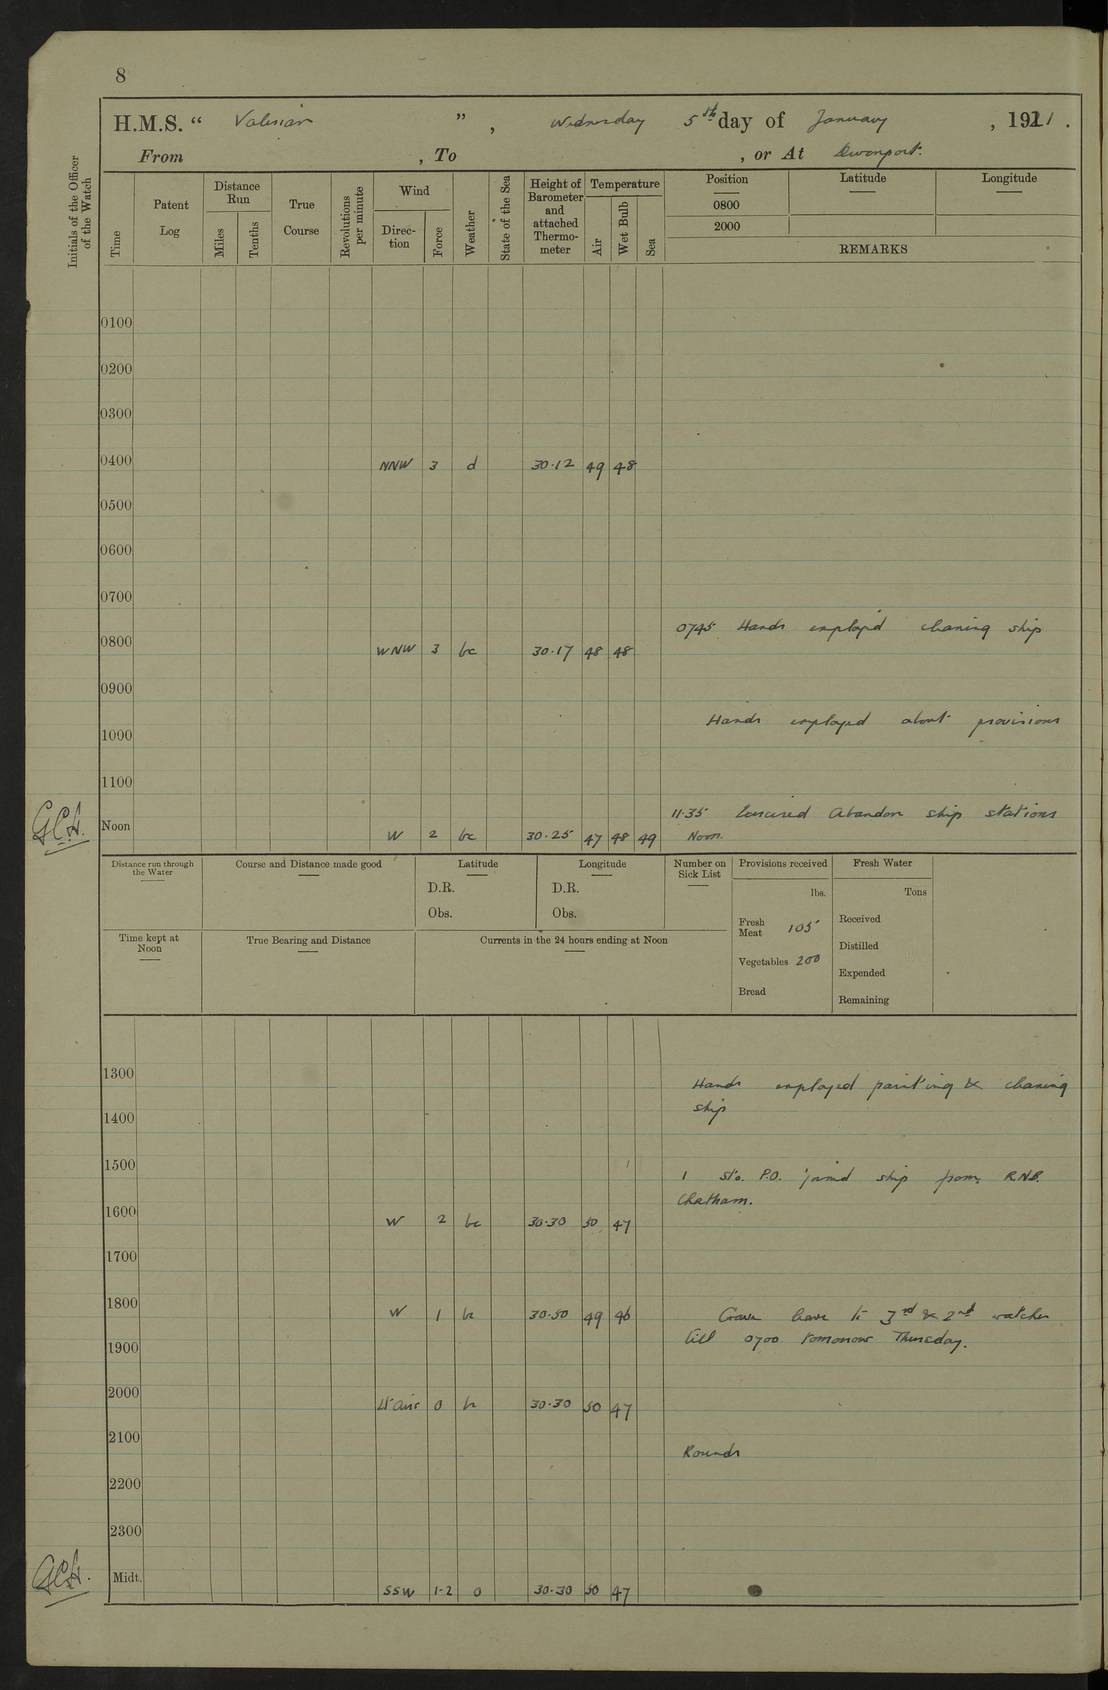 8
H.M.S. “ Valerian ” , Wednesday 5th day of January , 1921 .
From , To , or At Devonport.
Initials of the Officer of the Watch
Time
Patent Log
Distance Run
Miles
Tenths
True Course
Revolutions per minute
Wind
Direc-tion
Force
Weather
State of the Sea
Height of Barometer and attached Thermo-meter
Temperature
Air
Wet Bulb
Sea
Position Latitude Longitude
0800
2000
REMARKS
0100
0200
0300
0400 NNW 3 d 30.12 49 48
0500
0600
0700
0745 Hands employed cleaning ship
0800 WNW 3 bc 30.17 48 48
0900
Hands employed about provisions
1000
1100
11.35 Exercised Abandon ship stations
G.C.H. Noon W 2 bc 30.25 47 48 49 Noon.
Distance run through the Water
Course and Distance made good
Latitude
D.R.
Obs.
Longitude
D.R.
Obs.
Number on Sick List
Provisions received
lbs.
Fresh Meat 105
Vegetables 200
Bread
Fresh Water
Tons
Received
Distilled
Expended
Remaining
Time kept at Noon
True Bearing and Distance
Currents in the 24 hours ending at Noon
1300
Hands employed painting & cleaning
ship
1400
1500
1 Sto. P.O. joined ship from R.N.B.
Chatham.
1600 W 2 bc 30.30 50 47
1700
1800 W 1 bc 30.30 49 46
Gave leave to 3rd & 2nd watches
till 0700 tomorrow Thursday.
1900
2000 Lt airs 0 bc 30.30 50 47
2100
Rounds
2200
2300
G.C.H. Midt. SSW 1-2 o 30.30 50 47